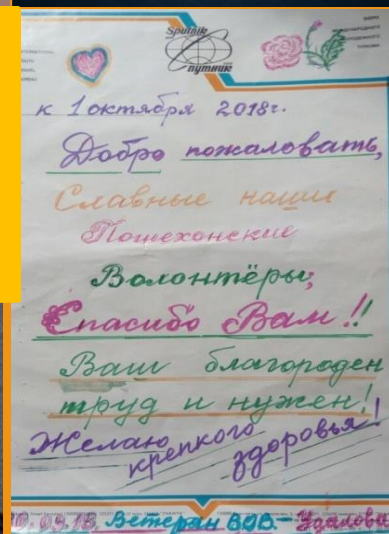 Sputnik
Спутник
к 1 октября 2018г.
Добро пожаловать,
Славные наши
Пошехонские
Волонтёры;
Спасибо Вам!!
Ваш благороден
труд и нужен!
Желаю
крепкого
здоровья!
10.09.18. Ветеран ВОВ. - Удалова